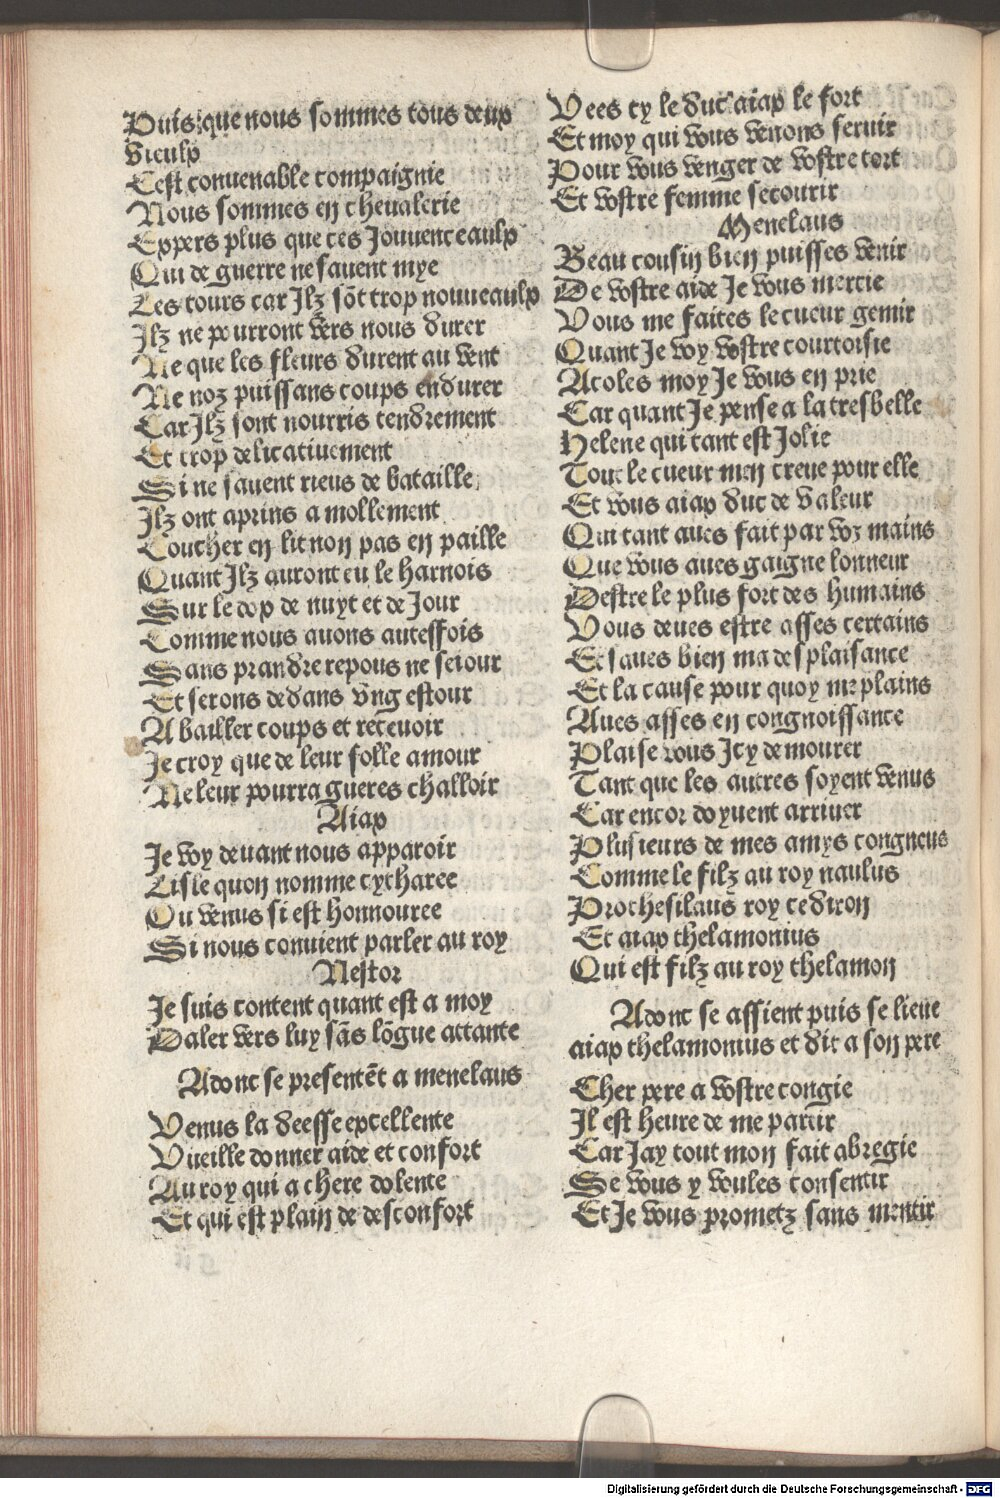 Puis que nous sommes tous deux
Vieulx
Cest conuenable compaignie
Nous sommes en cheualerie
Expers plus que ces Jouuenceaulx
Qui de guerre ne sauent mye
Les tours car Jlz sõt trop nouueaulx
Jlz ne pourront vers nous durer
Ne que les fleurs durent au vent
Ne noz puissans coups endurer
Car Jlz sont nourris tendrement
Et trop delicatiuement
Si ne sauent riens de bataille
Jlz ont aprins a mollement
Coucher en lit non pas en paille
Quant Jlz auront eu le harnois
Sur le dox de nuyt et de Jour
Comme nous auons autesfois
Sans prandre repous ne seiour
Et serons dedans vng estour
A bailler coups et receuoir
Je croy que de leur folle amour
Ne leur pourra gueres challoir
Aiax
Je voy deuant nous apparoir
Lisle quon nomme cytharee
Ou venus si est honnouree
Si nous conuient parler au roy
Nestor
Je suis content quant est a moy
Daler vers luy sãs lõgue attante
Adonc se presentẽt a menelaus
Venus la deesse excellente
Vueille donner aide et confort
Au roy qui a chere dolente
Et qui est plain de desconfort
Vees cy le duc aiax le fort
Et moy qui vous venons seruir
Pour vous venger de vostre tort
Et vostre femme secourir
Menelaus
Beau cousin bien puisses venir
De vostre aide Je vous mercie
Vous me faites le cueur gemir
Quant Je voy vostre courtoisie
Acoles moy Je vous en prie
Car quant Je pense a la tresbelle
Helene qui tant est Jolie
Tout le cueur men creue pour elle
Et vous aiax duc de valeur
Qui tant aues fait par voz mains
Que vous aues gaigne lonneur
Destre le plus fort des humains
Vous deues estre asses certains
Et saues bien ma desplaisance
Et la cause pour quoy me plains
Aues asses en congnoissance
Plaise vous Jcy demourer
Tant que les autres soyent venus
Car encor doyuent arriuer
Plusieurs de mes amys congneus
Comme le filz au roy naulus
Prothesilaus roy cediron
Et aiax thelamonius
Qui est filz au roy thelamon
Adonc se assient puis se lieue
aiax thelamonius et dit a son pere
Cher pere a vostre congie
Jl est heure de me partir
Car Jay tout mon fait abregie
Se vous y voules consentir
Et Je vous prometz sans mentir
Digitalisierung gefördert durch die Deutsche Forschungsgemeinschaft - DFG